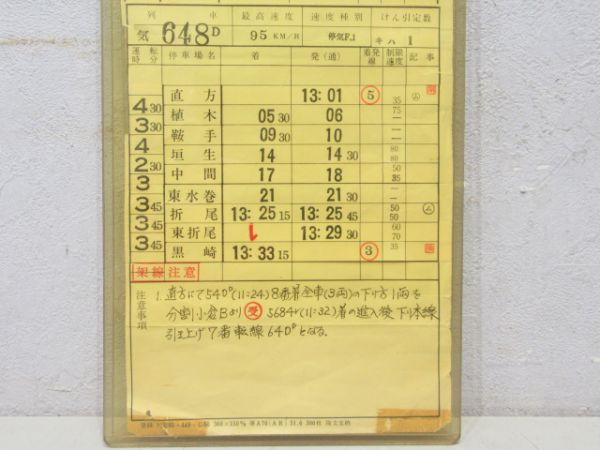 列 車 最高速度 速度種別 けん引定数
気 648D 95 KM/H 停気F1 キハ 1
運転時分 停車場名 着 発(通) 着発線 制限速度 記事
直方 13:01 ⑤ 35
4 30
植木 05 30 06 75
3 30
鞍手 09 30 10
4
垣生 14 14 30 80
2 30
中間 17 18 50 35
3
東水巻 21 21 30
3 45
折尾 13:25 15 13:25 45 50 50
3 45
東折尾 13:29 30 60 70
3 45
黒崎 13:33 15 ③ 35
架線注意
注意事項
1. 直方にて540D(11:24)8番着全車(3両)の下り方1両を
分割小倉Bより 受 5684レ(11:32)着の進入後下り本線
引上げ7番転線640Dとなる。